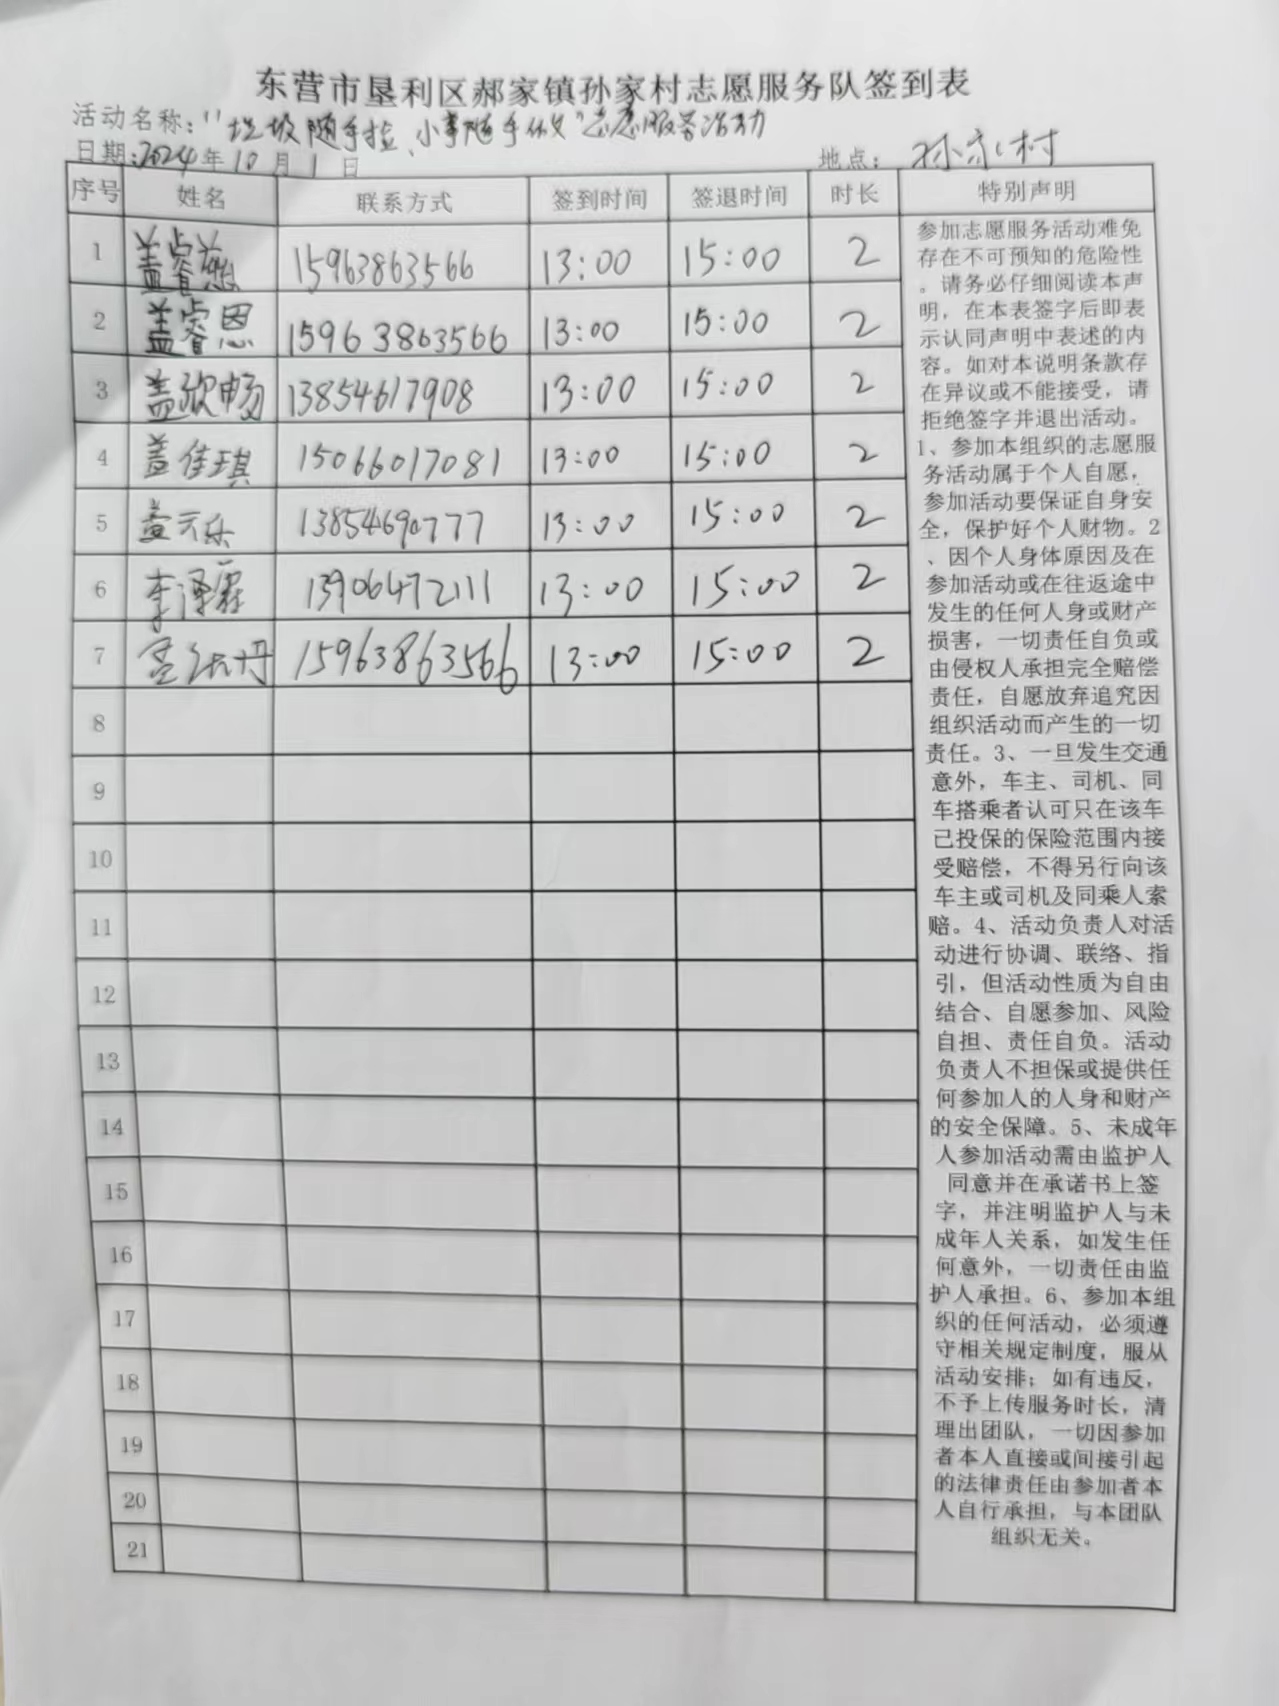 东营市垦利区郝家镇孙家村志愿服务队签到表
活动名称："垃圾随手捡、小事随手做"志愿服务活动
日期:2024年10月1日 地点：孙家村
序号 姓名 联系方式 签到时间 签退时间 时长 特别声明
1 盖睿慈 15963863566 13:00 15:00 2
2 盖睿恩 15963863566 13:00 15:00 2
3 盖欣畅 13854617908 13:00 15:00 2
4 盖佳琪 15066017081 13:00 15:00 2
5 盖云乐 13854690777 13:00 15:00 2
6 李泽霖 13906472111 13:00 15:00 2
7 15963863566 13:00 15:00 2
8
9
10
11
12
13
14
15
16
17
18
19
20
21
参加志愿服务活动难免
存在不可预知的危险性
。请务必仔细阅读本声
明，在本表签字后即表
示认同声明中表述的内
容。如对本说明条款存
在异议或不能接受，请
拒绝签字并退出活动。
1、参加本组织的志愿服
务活动属于个人自愿，
参加活动要保证自身安
全，保护好个人财物。2
、因个人身体原因及在
参加活动或在往返途中
发生的任何人身或财产
损害，一切责任自负或
由侵权人承担完全赔偿
责任，自愿放弃追究因
组织活动而产生的一切
责任。3、一旦发生交通
意外，车主、司机、同
车搭乘者认可只在该车
已投保的保险范围内接
受赔偿，不得另行向该
车主或司机及同乘人索
赔。4、活动负责人对活
动进行协调、联络、指
引，但活动性质为自由
结合、自愿参加、风险
自担、责任自负。活动
负责人不担保或提供任
何参加人的人身和财产
的安全保障。5、未成年
人参加活动需由监护人
同意并在承诺书上签
字，并注明监护人与未
成年人关系，如发生任
何意外，一切责任由监
护人承担。6、参加本组
织的任何活动，必须遵
守相关规定制度，服从
活动安排；如有违反，
不予上传服务时长，清
理出团队，一切因参加
者本人直接或间接引起
的法律责任由参加者本
人自行承担，与本团队
组织无关。